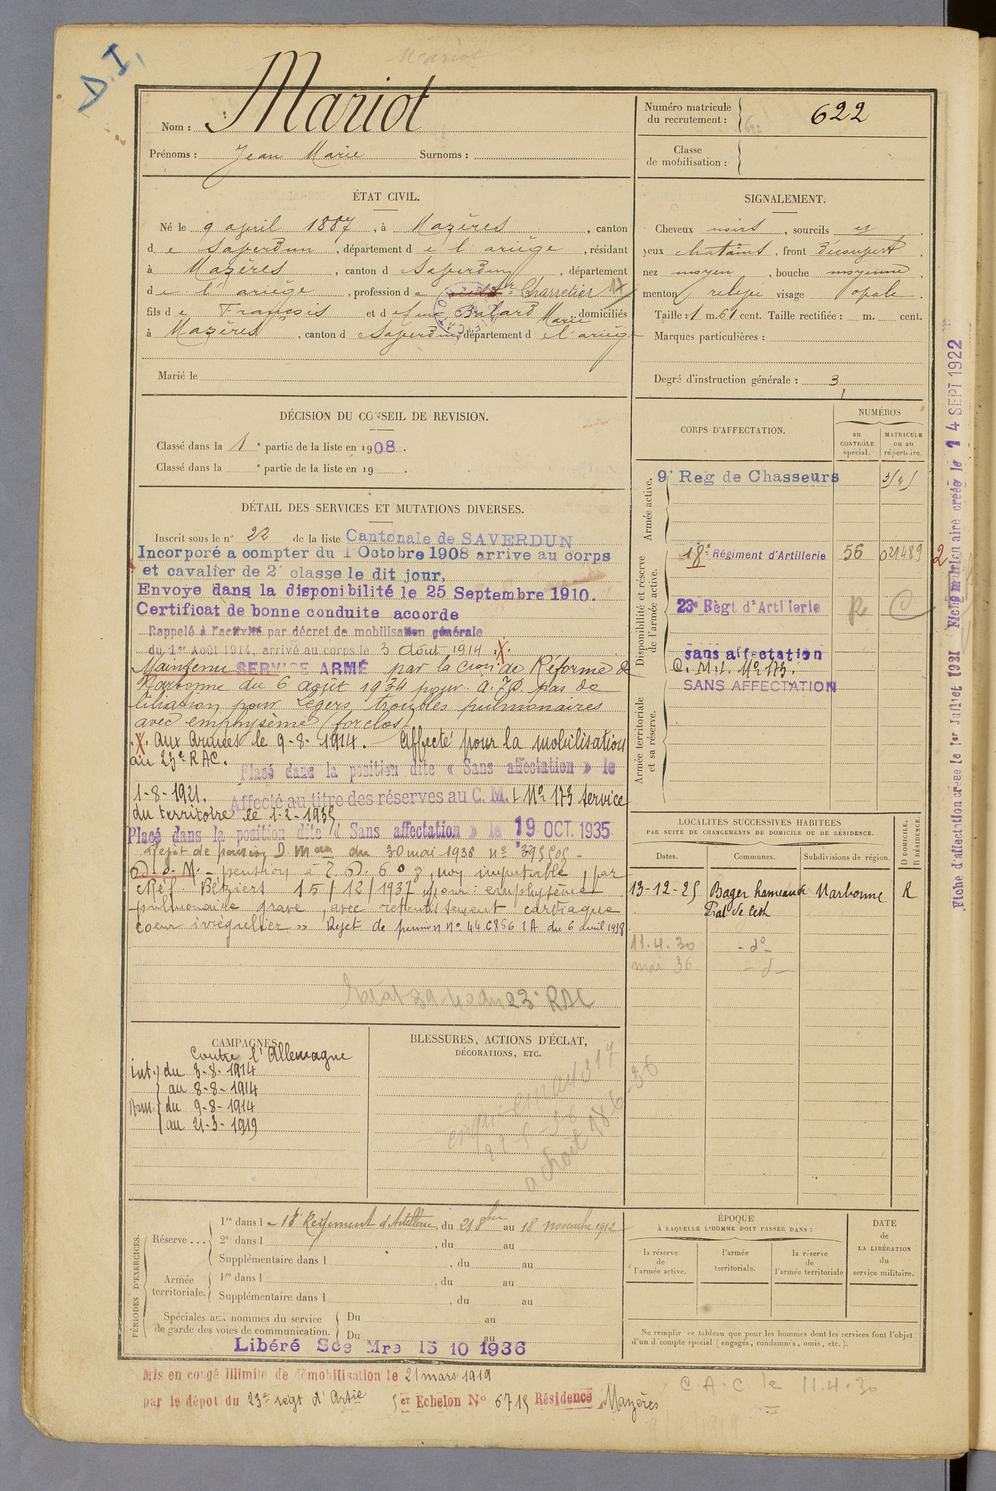 D.I.
Mariot
Nom : Mariot
Prénoms : Jean Marie Surnoms :
Numéro matricule du recrutement : 622
Classe de mobilisation :
ÉTAT CIVIL.
Né le 9 april 1887, à Mazères, canton
de Saverdun, département de l'ariège, résidant
à Mazères, canton d Saverdun, département
de l'ariège, profession de Charretier 17
fils de François et de feue Marie domiciliés
à Mazères, canton d Saverdun, département d e l'ariège
Marié le
SIGNALEMENT.
Cheveux noirs, sourcils id
yeux chatains, front Découvert
nez moyen, bouche moyenne
menton relevé visage opale
Taille : 1 m. 61 cent. Taille rectifiée : m. cent.
Marques particulières :
Degré d'instruction générale : 3
DÉCISION DU CONSEIL DE REVISION.
Classé dans la 1e partie de la liste en 1908.
Classé dans la e partie de la liste en 19 .
DÉTAIL DES SERVICES ET MUTATIONS DIVERSES.
Inscrit sous le n° 22 de la liste Cantonale de SAVERDUN
Incorporé a compter du 1 Octobre 1908 arrive au corps
et cavalier de 2e classe le dit jour,
Envoye dans la disponibilité le 25 Septembre 1910.
Certificat de bonne conduite accorde
Rappelé à l'activité par décret de mobilisation générale
du 1er Août 1914, arrivé au corps le 3 Août 1914 .X.
Maintenu SERVICE ARMÉ par la Cion de Réforme de
Narbonne du 6 août 1934 pour
pour légers troubles pulmonaires
avec emphysème forclos
.X. aux armées le 9-8-1914. Affecté pour la mobilisation
au 23e RAC. Placé dans la position dite « Sans affectation » le
1-8-1921. Affecté au titre des réserves au C. M. I N° 173 service
du territoire le 1-2-1935
Placé dans la position dite « Sans affectation » le 19 OCT. 1935
Rejet de pension D. M. du 30 mai 1938 n°
pension non imputable, par
Réf. Béziers 15/12/1937 pour : emphysème
pulmonaire grave, avec retentissement cardiaque
coeur irrégulier » Rejet de pension n° 44.6856 IA du 6 avril 1938
23e RAC
CORPS D'AFFECTATION.
NUMÉROS
au CONTRÔLE spécial.
MATRICULE ou au répertoire.
Armée active.
9e Reg de Chasseurs
Disponibilité et réserve de l'armée active.
18e Régiment d'Artillerie 56 021489 2
23e Règt d'Artillerie R C
sans affectation
C. M. I. N° 173.
SANS AFFECTATION
Armée territoriale et sa réserve.
LOCALITÉS SUCCESSIVES HABITÉES
PAR SUITE DE CHANGEMENTS DE DOMICILE OU DE RÉSIDENCE.
Dates. Communes. Subdivisions de région. D DOMICILE. R RÉSIDENCE.
13-12-25 Bages hameau de Narbonne R
11.4.30 - d° -
mai 36 - d -
CAMPAGNES
Contre l'Allemagne
int. du 3-8-1914
au 8-8-1914
Arm. du 9-8-1914
au 21-3-1919
BLESSURES, ACTIONS D'ÉCLAT,
DÉCORATIONS, ETC.
PÉRIODES D'EXERCICES.
Réserve ... 1re dans l e 18 Régiment d'Artillerie, du 21 8bre au 18 novembre 1912
2e dans l , du au
Supplémentaire dans l , du au
Armée territoriale. 1re dans l , du au
Supplémentaire dans l , du au
Spéciales aux hommes du service de garde des voies de communication. Du au
Du au
Libéré Sce Mre 15 10 1936
ÉPOQUE
À LAQUELLE L'HOMME DOIT PASSER DANS :
la réserve de l'armée active.
l'armée territoriale.
la réserve de l'armée territoriale
DATE de LA LIBÉRATION du service militaire.
Ne remplir ce tableau que pour les hommes dont les services font l'objet
d'un compte spécial (engagés, condamnés, omis, etc.).
Mis en congé illimité de démobilisation le 21 mars 1919
par le dépôt du 23e regt d'Artie 5er Echelon N° 6715 Résidence Mazères
C.A.C le 11.4.30
Fiche d'affectation créée le 1er Juillet 1921 créée le 14 SEPT 1922